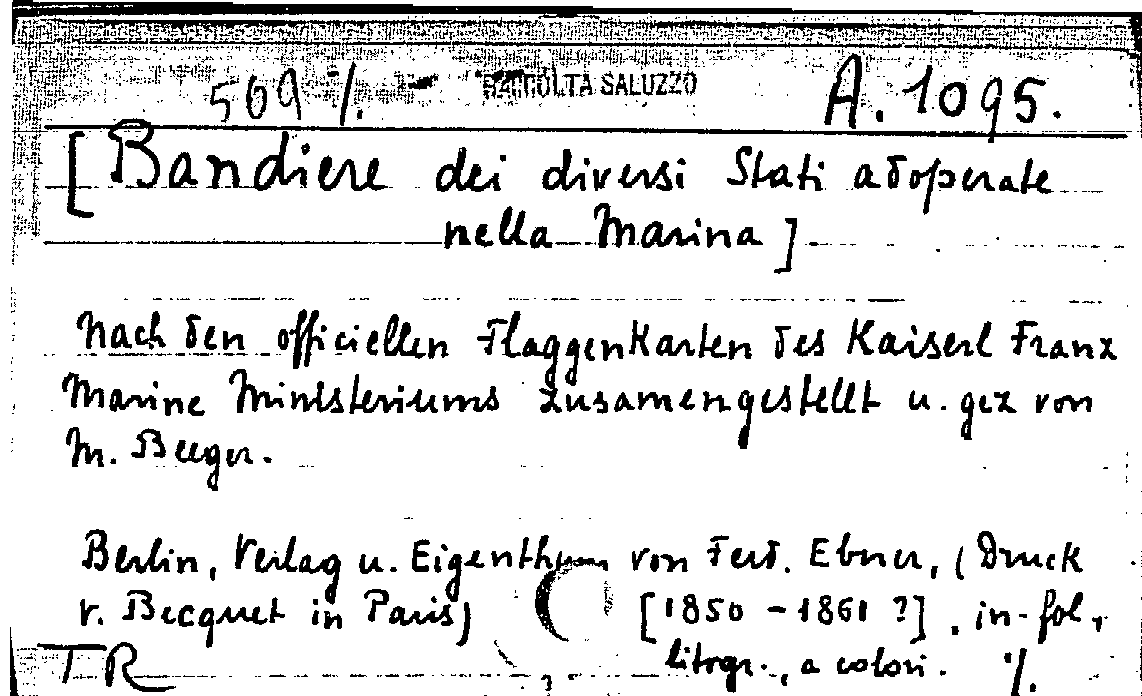 509 /. RACCOLTA SALUZZO A. 1095.
[Bandiere dei diversi Stati adoperate
nella Marina].
Nach den officiellen Flaggenkarten des Kaiserl Franz
Marine Ministeriums zusamengestellt u. gez von
M. Beeger.
Berlin, Verlag u. Eigenthum von Ferd. Ebner, (Druck
v. Becquet in Paris) [1850 - 1861 ?]. in-fol.
TR litogr., a colori. /.